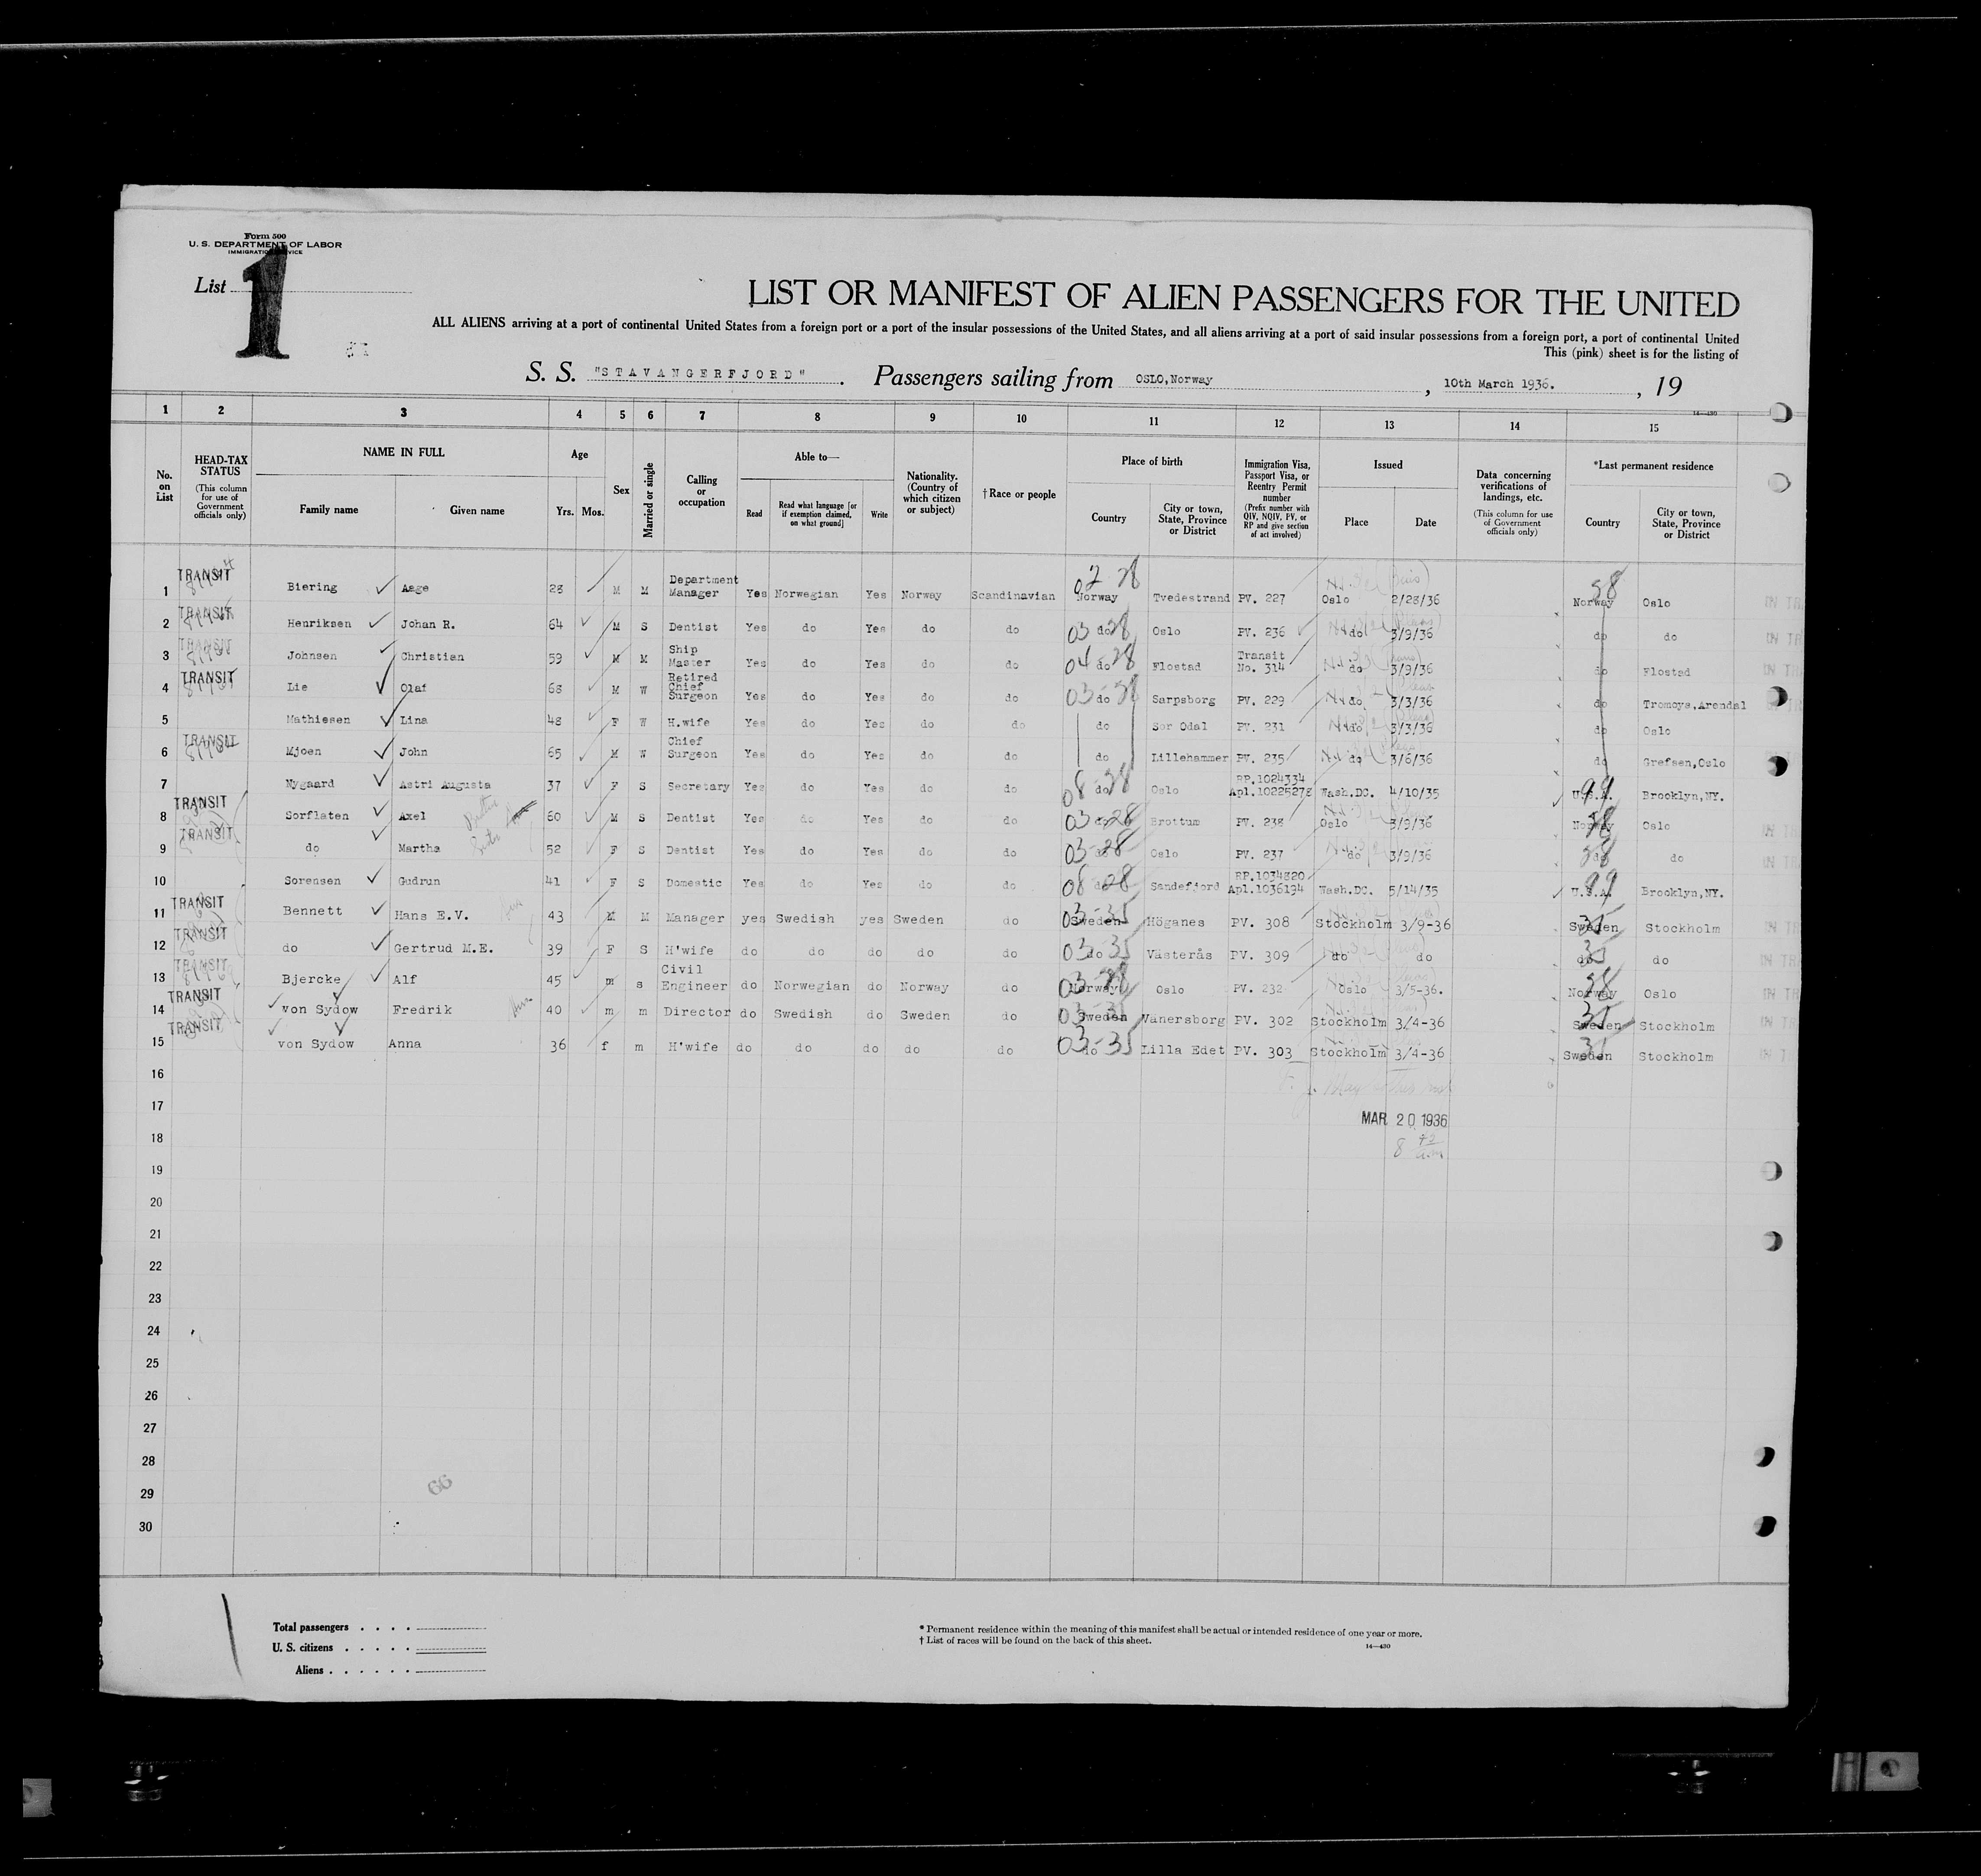 Form 500
U. S. DEPARTMENT OF LABOR
IMMIGRATION SERVICE
List 1
LIST OR MANIFEST OF ALIEN PASSENGERS FOR THE UNITED
ALL ALIENS arriving at a port of continental United States from a foreign port or a port of the insular possessions of the United States, and all aliens arriving at a port of said insular possessions from a foreign port, a port of continental United
This (pink) sheet is for the listing of
S. S. "STAVANGERFJORD". Passengers sailing from OSLO,Norway, 10th March 1936., 19
14—430
1 2 3 4 5 6 7 8 9 10 11 12 13 14 15
No. on List
HEAD-TAX STATUS (This column for use of Government officials only)
NAME IN FULL Family name Given name
Age Yrs. Mos.
Sex
Married or single
Calling or occupation
Able to— Read Read what language [or if exemption claimed, on what ground] Write
Nationality. (Country of which citizen or subject)
†Race or people
Place of birth Country City or town, State, Province or District
Immigration Visa, Passport Visa, or Reentry Permit number (Prefix number with QIV, NQIV, PV, or RP and give section of act involved)
Issued Place Date
Data concerning verifications of landings, etc. (This column for use of Government officials only)
*Last permanent residence Country City or town, State, Province or District
1 TRANSIT Biering Aage 28 M M Department Manager Yes Norwegian Yes Norway Scandinavian Norway Tvedestrand PV. 227 Oslo 2/28/36 Norway Oslo
2 TRANSIT Henriksen Johan R. 64 M S Dentist Yes do Yes do do 03 do 28 Oslo PV. 236 do 3/9/36 do do
3 TRANSIT Johnsen Christian 59 M M Ship Master Yes do Yes do do 04 do 28 Flostad Transit No. 314 do 3/9/36 do Flostad
4 TRANSIT Lie Olaf 68 M W Retired Chief Surgeon Yes do Yes do do 03 do 28 Sarpsborg PV. 229 do 3/3/36 do Tromoys,Arendal
5 Mathiesen Lina 48 F W H.wife Yes do Yes do do do Sor Odal PV. 231 do 3/3/36 do Oslo
6 TRANSIT Mjoen John 65 M W Chief Surgeon Yes do Yes do do do Lillehammer PV. 235 do 3/6/36 do Grefsen,Oslo
7 Nygaard Astri Augusta 37 F S Secretary Yes do Yes do do 08 do 28 Oslo RP.1024334 Apl.10225278 Wash.DC. 4/10/35 U.S.A. 99 Brooklyn,NY.
8 TRANSIT Sorflaten Axel 60 M S Dentist Yes do Yes do do 03 do 28 Brottum PV. 238 Oslo 3/9/36 Norway Oslo
9 TRANSIT do Martha 52 F S Dentist Yes do Yes do do 03 do 28 Oslo PV. 237 do 3/9/36 do do
10 Sorensen Gudrun 41 F S Domestic Yes do Yes do do 08 do 28 Sandefjord RP.1034820 Apl.1036194 Wash.DC. 5/14/35 U.S.A. 99 Brooklyn,NY.
11 TRANSIT Bennett Hans E.V. 43 M M Manager yes Swedish yes Sweden do Sweden 03-35 Höganes PV. 308 Stockholm 3/9-36 Sweden 35 Stockholm
12 TRANSIT do Gertrud M.E. 39 F S H'wife do do do do do 03 do-35 Västerås PV. 309 do do do 35 do
13 TRANSIT Bjercke Alf 45 m s Civil Engineer do Norwegian do Norway do Norway Oslo PV. 232 Oslo 3/5-36. Norway Oslo
14 TRANSIT von Sydow Fredrik 40 m m Director do Swedish do Sweden do Sweden 03-35 Vanersborg PV. 302 Stockholm 3/4-36 Sweden 35 Stockholm
15 TRANSIT von Sydow Anna 36 f m H'wife do do do do do 03 do-35 Lilla Edet PV. 303 Stockholm 3/4-36 Sweden 35 Stockholm
16
17 MAR 20 1936
18
19
20
21
22
23
24
25
26
27
28
29 66
30
Total passengers . . . .
U. S. citizens . . . . .
Aliens . . . . . .
* Permanent residence within the meaning of this manifest shall be actual or intended residence of one year or more.
† List of races will be found on the back of this sheet.
14—430